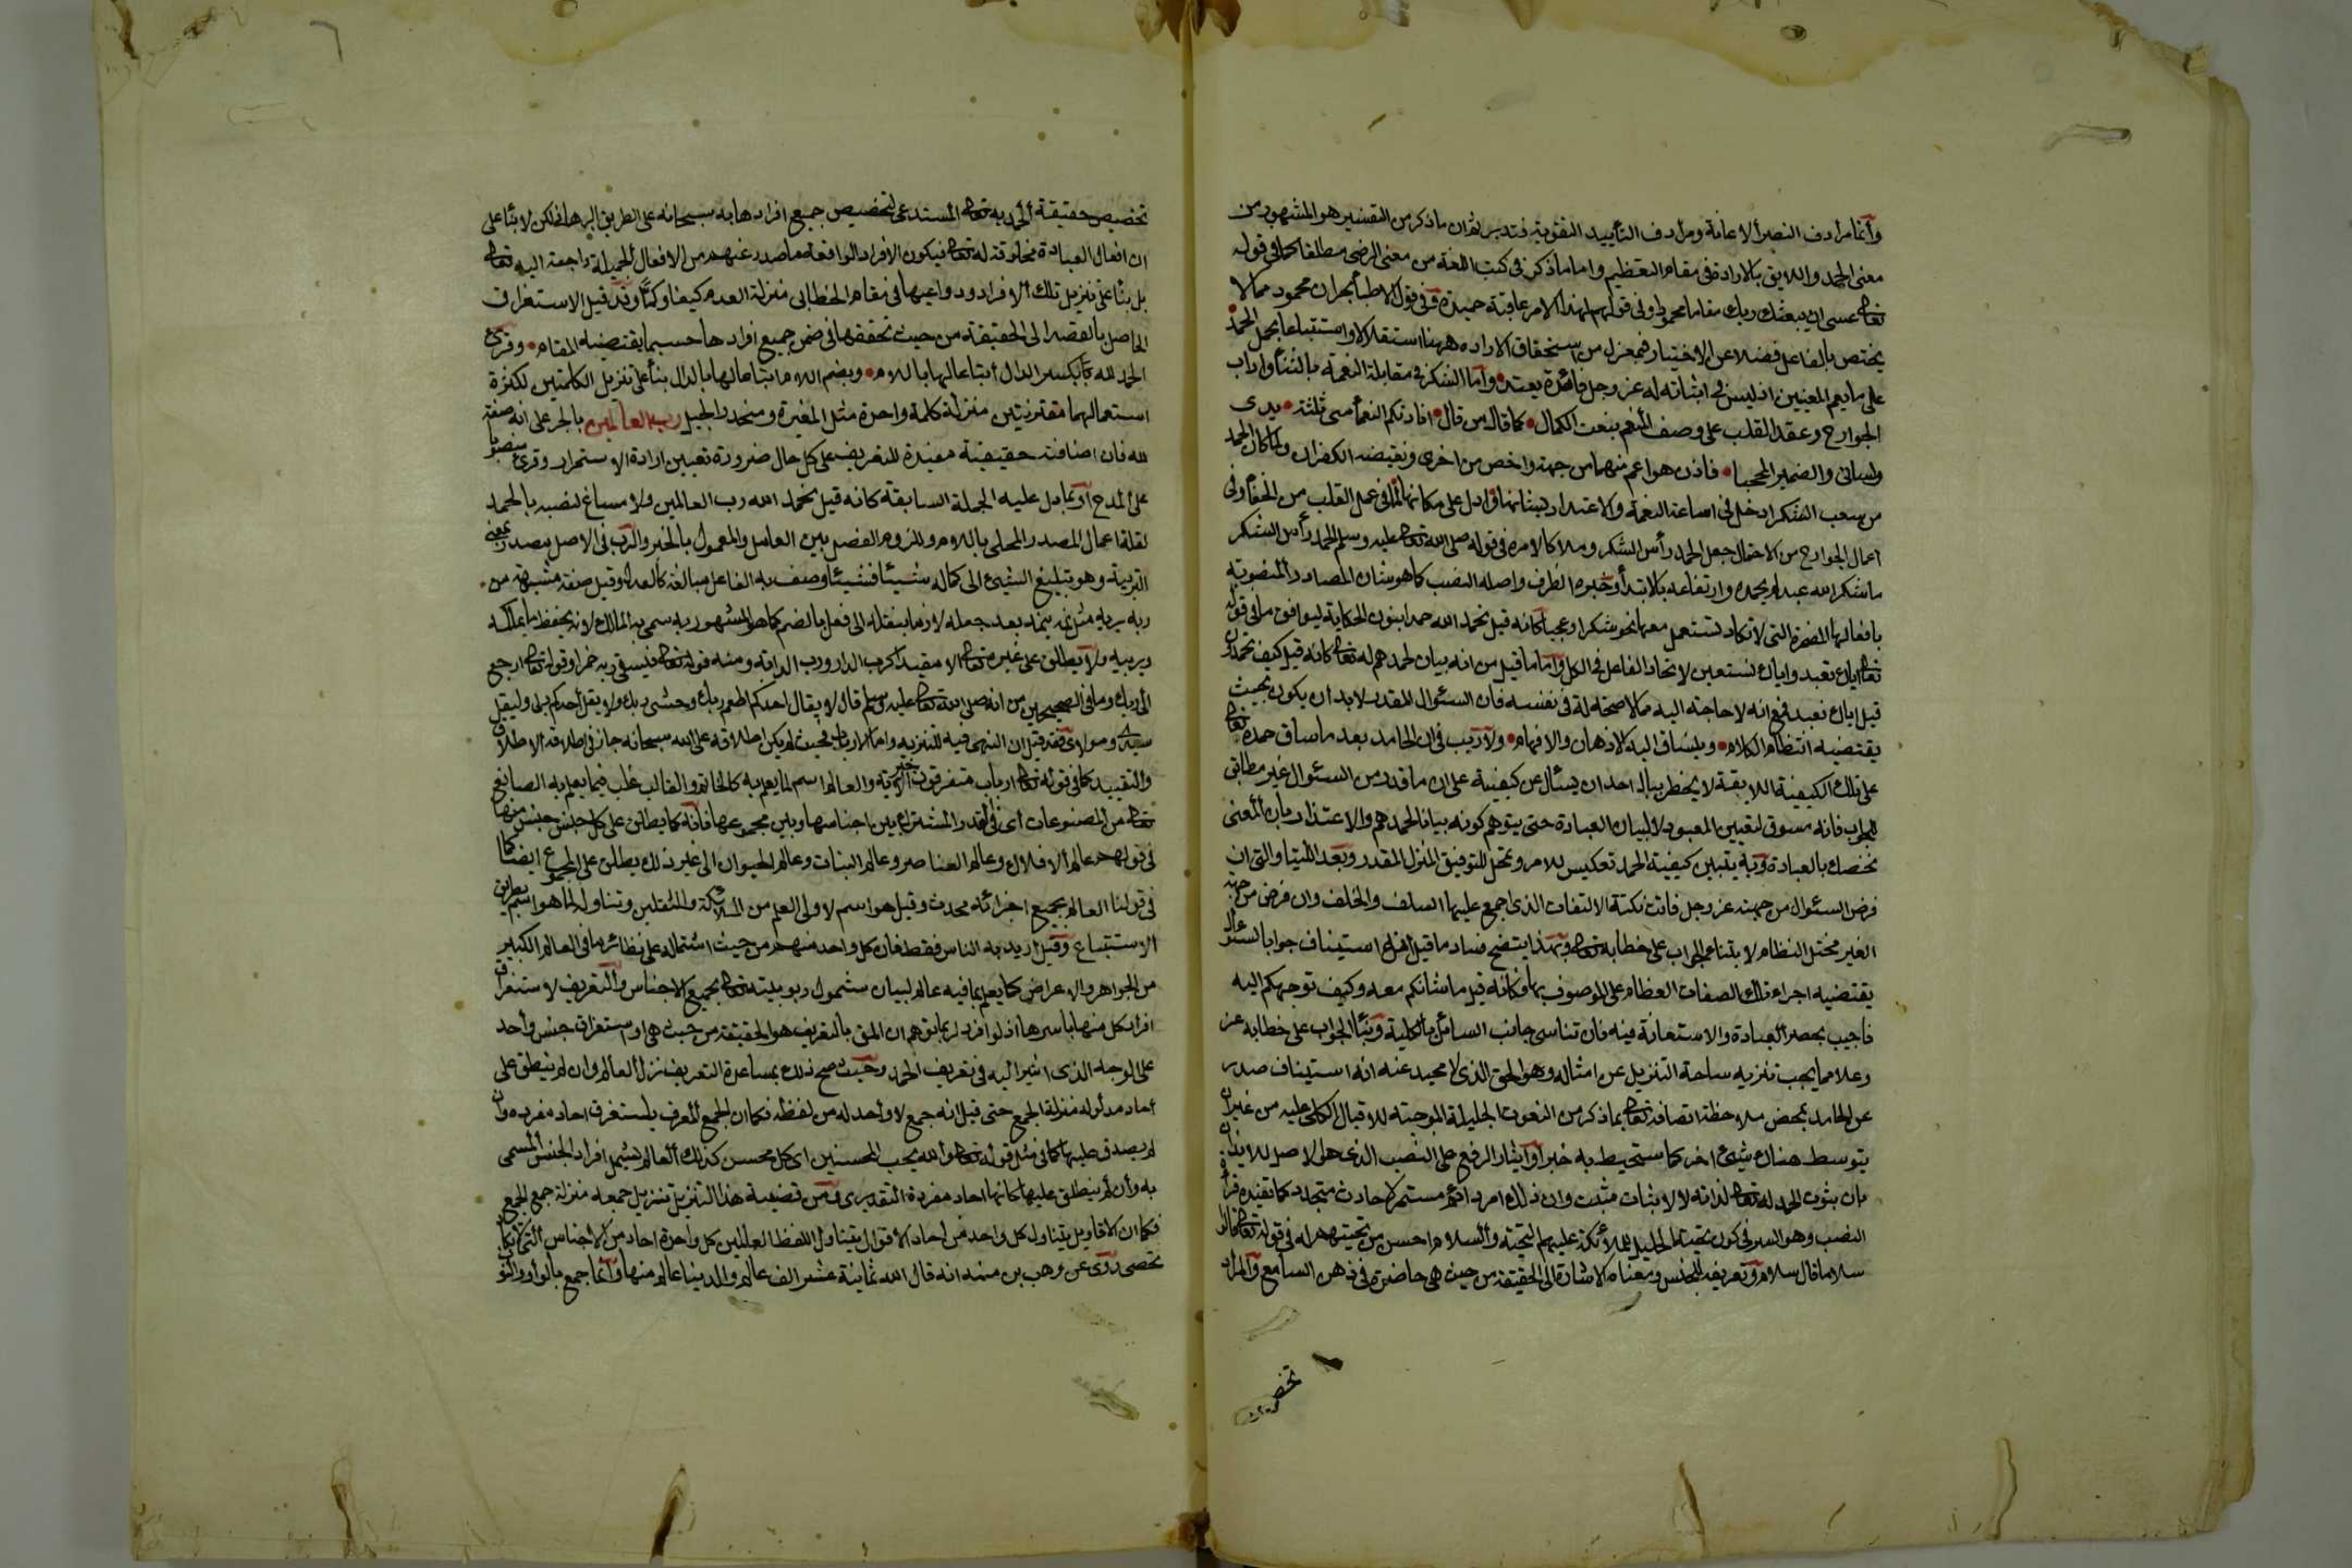 وأنما مرادف النصر الاعانة ومرادف التأييد التقوية فتدبر ثم ان ما ذكر من التفسير هو المشهور من
معنى الحمد واللايق بالارادة في مقام التعظيم واما ما ذكر في كتب اللغة من معنى الرضى مطلقا كما في قوله
تعالى عسى ان يبعثك ربك مقاما محمودا وفي قولهم لهذا الامر عاقبة حميدة وفي قول الاطبا بحران محمود مما لا
يختص بالفاعل فضلا عن الاختيار فبمعزل من استحقاق الارادة ههنا استقلالا او استتباعا بحمل الحمد
على ما يعم المعنيين اذ ليس في اثباته له عز وجل فائدة يعتد وأما الشكر في مقابلة النعمة بالثنا وآداب
الجوارح وعقد القلب على وصف المنعم بنعت الكمال كما قال من قال افادتكم النعما منى ثلثة يدى
ولسانى والضمير المحجبا فاذن هو اعم منهما من جهة واخص من اخرى ونقيضه الكفران ولما كان الحمد
من شعب الشكر ادخل في اشاعة النعمة والاعتداد بشانها وادل على مكانها لما في عمل القلب من الخفا وفى
اعمال الجوارح من الاحتمال جعل الحمد رأس الشكر وملاكا لامره في قوله صلى الله تعالى عليه وسلم الحمد رأس الشكر
ما شكر الله عبد لم يحمده وارتفاعه بالابتدا وخبره الظرف واصله النصب كما هو شان المصادر المنصوبة
بافعالها المضمرة التى لا تكاد تستعمل معها نحو شكرا وعجبا كانه قيل نحمد الله حمدا بنون الحكاية ليوافق ما في قوله
تعالى اياك نعبد واياك نستعين لاتحاد الفاعل في الكل وأما ما قيل من انه بيان لحمدهم له تعالى كانه قيل كيف تحمدون
قيل اياك نعبد فمع انه لا حاجة اليه مما لا صحة له في نفسه فان السئوال المقدر لا بد ان يكون بحيث
يقتضيه انتظام الكلام وينساق اليه الاذهان والافهام ولا ريب في ان الحامد بعد ما ساق حمده تعالى
على تلك الكيفية اللايقة لا يخطر ببال احد ان يسئال عن كيفيته على ان ما قدر من السئوال غير مطابق
للجواب فانه مسوق لتعيين المعبود لا لبيان العبادة حتى يتوهم كونه بيانا لحمدهم والاعتذار بان المعنى
نخصك بالعبادة وبه يتبين كيفية الحمد تعكيس للامر وتمحل لتوفيق المنزل المقدر وبعد اللتيا والتى ان
فرض السئوال من جهته عز وجل فاتت نكتة الالتفات الذى اجمع عليها السلف والخلف وان فرض من جهة
الغير يختل النظام لابتناء الجواب على خطابه تعالى وبهذا يتضح فساد ما قيل انه استيناف جوابا لسئوال
يقتضيه اجراء تلك الصفات العظام على الموصوف بها فكانه قيل ما شانكم معه وكيف توجهكم اليه
فاجيب بحصر العبادة والاستعانة فيه فان تناسى جانب السائل بالكلية وبنا الجواب على خطابه عز
وعلا مما يجب تنزيه ساحة التنزيل عن امثاله وهو الحق الذى لا محيد عنه انه استيناف صدر
عن الحامد بمحض ملاحظة اتصافه تعالى بما ذكر من النعوت الجليلة الموجبة للاقبال الكلى عليه من غير ان
يتوسط هناك شيئ اخر كما ستحيط به خبرا وأيثار الرفع على النصب الذى هو الاصل للايذان
بان ثبوت الحمد له تعالى لذاته لا لاثبات مثبت وان ذلك امر دائم مستمر لا حادث متجدد كما تفيده قرأة
النصب وهو السر في كون تحية الخليل للملائكة عليهم التحية والسلام احسن من تحيتهم له في قوله تعالى قالوا
سلاما قال سلام وتعريفه للجنس ومعناه الاشارة الى الحقيقة من حيث هى حاضرة في ذهن السامع والمراد
تخصيص
تخصيص حقيقة الحمد به تعالى المستدعى لتخصيص جميع افرادها به سبحانه على الطريق البرهانى لكن لا بنأ على
ان افعال العباد مخلوقة له تعالى فيكون الافراد الواقعة ما صدر عنهم من الافعال الجميلة راجعة اليه تعالى
بل بنأ على تنزيل تلك الافراد ودواعيها في مقام الخطابى منزلة العدم كيفا وكما وقد قيل الاستغراق
الحاصل بالقصد الى الحقيقة من حيث تحققها في ضمن جميع افرادها حسبما يقتضيه المقام وقرئ
الحمد لله بكسر الدال اتباعا لها باللام وبضم اللام اتباعا لها بالدال بنأ على تنزيل الكلمتين لكثرة
استعمالهما مقترنيتين منزلة كلمة واحدة مثل المغيرة ومنحدر الجبل رب العالمين بالجر على انه صفة
لله فان اضافته حقيقية مفيدة للتعريف على كل حال ضرورة تعيين ارادة الاستمرار وقرئ منصوبا
على المدح أو بما دل عليه الجملة السابقة كانه قيل نحمد الله رب العالمين ولا مساغ لنصبه بالحمد
لقلة اعمال المصدر المحلى باللام وللزوم الفصل بين العامل والمعمول بالخبر والرب في الاصل مصدر بمعنى
التربية وهو تبليغ الشيئ الى كماله شيئا فشيئا وصف به الفاعل مبالغة كالعدل وقيل صفة مشبهة من
ربه يربه مثل نمه ينمه بعد جعله لازما بنقله الى فعل بالضم كما هو المشهور به سمى به المالك لانه يحفظ ما يملكه
ويربيه ولا يطلق على غيره تعالى الا مقيدا كرب الدار ورب الدابة ومنه قوله تعالى فيسقى ربه خمرا وقوله تعالى ارجع
الى ربك وما في الصحيحين من انه صلى الله تعالى عليه وسلم قال لا يقال احدكم اطعم ربك وضئ ربك ولا يقل أحدكم ربى وليقل
سيدى ومولاى فقد قيل ان النهى فيه للتنزيه واما الارباب فحيث لم يكن اطلاقه على الله سبحانه جاز في اطلاقه الاطلاق
والتقييد كما في قوله تعالى ارباب متفرقون خير الآية والعالم اسم لما يعلم به كالخاتم والقالب غلب فيما يعلم به الصانع
تعالى من المصنوعات أى في القدر المشترك بين اجناسها وبين مجموعها فانه كما يطلق على كل جنس جنس منها
في قولهم عالم الافلاك وعالم العناصر وعالم النبات وعالم الحيوان الى غير ذلك يطلق على المجموع ايضا كما
في قولنا العالم بجميع اجزائه محدث وقيل هو اسم لاولى العلم من الملائكة والثقلين وتناوله لما سواهم بطريق
الاستتباع وقيل اريد به الناس فقط فان كل واحد منهم من حيث اشتماله على نظائر ما في العالم الكبير
من الجواهر والاعراض كما يعلم بما فيه عالم لبيان شمول ربوبيته تعالى بجميع الاجناس والتعريف لاستغراق
افراد كل منها باسرها اذ لو افرد لربما توهم ان المق بالتعريف هو الحقيقة من حيث هى او استغراق جنس وأحد
على الوجه الذى اشير اليه في تعريف الحمد وحيث صح ذلك بمساعدة التعريف نزل العالم وان لم ينطلق على
أحاد مدلوله منزلة الجمع حتى قيل انه جمع لا وأحد له من لفظه فكما ان الجمع المعرف يستغرق احاد مفرده وان
لم يصدق عليها كما في مثل قوله تعالى والله يحب المحسنين اى كل محسن كذلك العالم يشمل افراد الجنس المسمى
به وأن لم ينطلق عليها كانها احاد مفرده التقديرى ومن قضية هذا التنزيل تنزيل جمعه منزلة جمع الجمع
فكما ان الاقاويل يتناول كل واحد من احاد الاقوال يتناول لفظ العالمين كل واحدة احاد من الاجناس التى لا تكاد
تحصى روى عن وهب بن منبه انه قال الله ثمانية عشر الف عالم والدينا عالم منها وأنما جمع بالوأو والنون